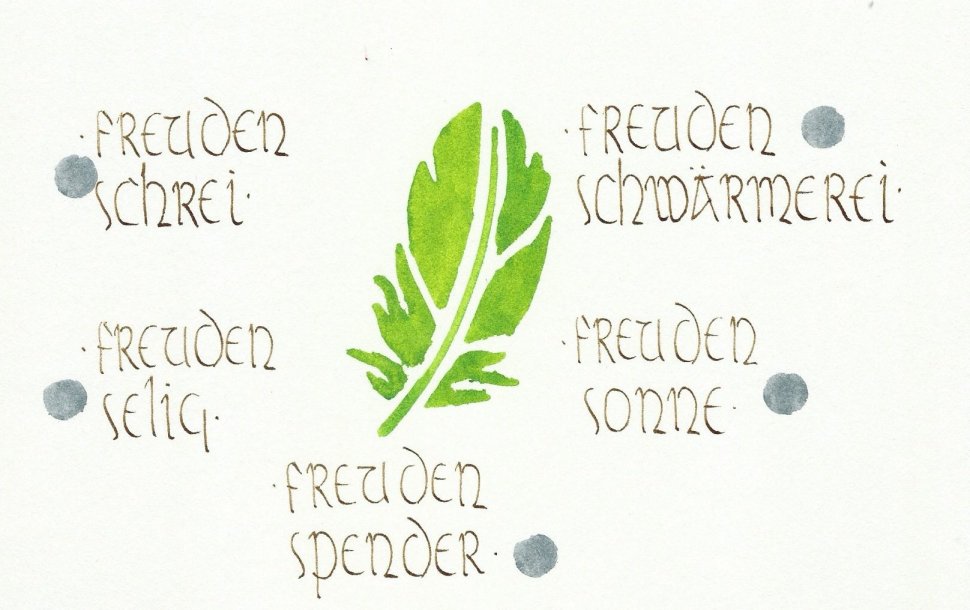 · FREUDEN
SCHREI ·
· FREUDEN
SCHWÄRMEREI ·
· FREUDEN
SELIG ·
· FREUDEN
SONNE ·
· FREUDEN
SPENDER ·